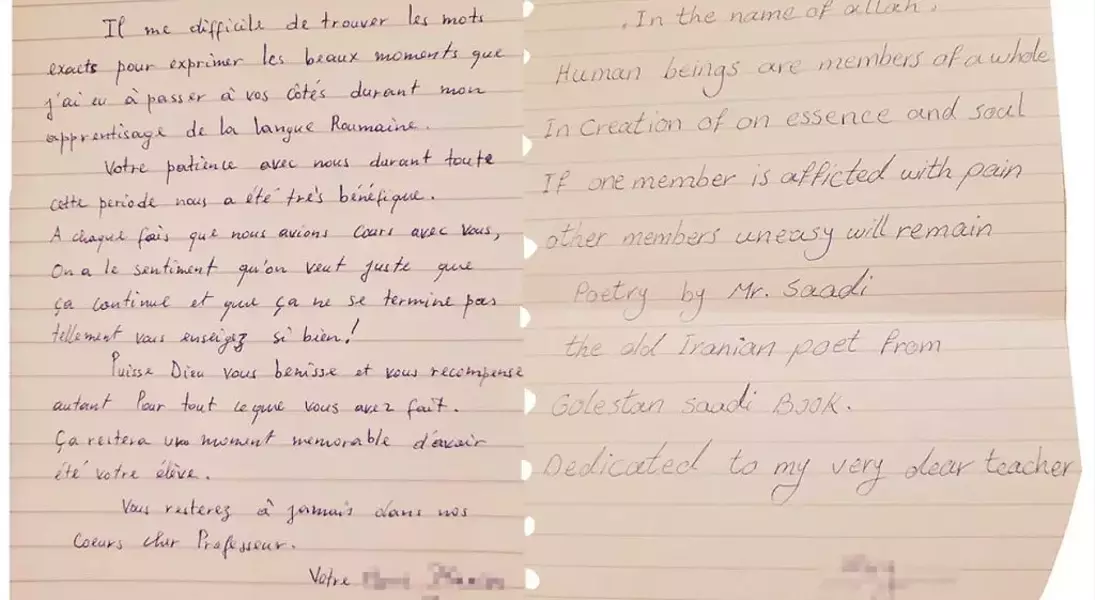 Il me difficile de trouver les mots
exacts pour exprimer les beaux moments que
j'ai eu à passer à vos côtés durant mon
apprentisage de la langue Roumaine.
Votre patience avec nous durant toute
cette periode nous a été trés bénéfique.
A chaque fois que nous avions cours avec vous,
On a le sentiment qu'on veut juste que
ça continue et que ça ne se termine pas
tellement vous enseigez si bien!
Puisse Dieu vous benisse et vous recompense
autant Pour tout ce que vous avez fait.
Ça restera un moment memorable d'avoir
été votre élève.
Vous resterez à jamais dans nos
Coeurs cher Professeur.
Votre
.In the name of allah.
Human beings are members of a whole
In Creation of on essence and soul
If one member is afficted with pain
other members uneasy will remain
Poetry by Mr. Saadi
the old Iranian poet from
Golestan saadi BOOK.
Dedicated to my very dear teacher